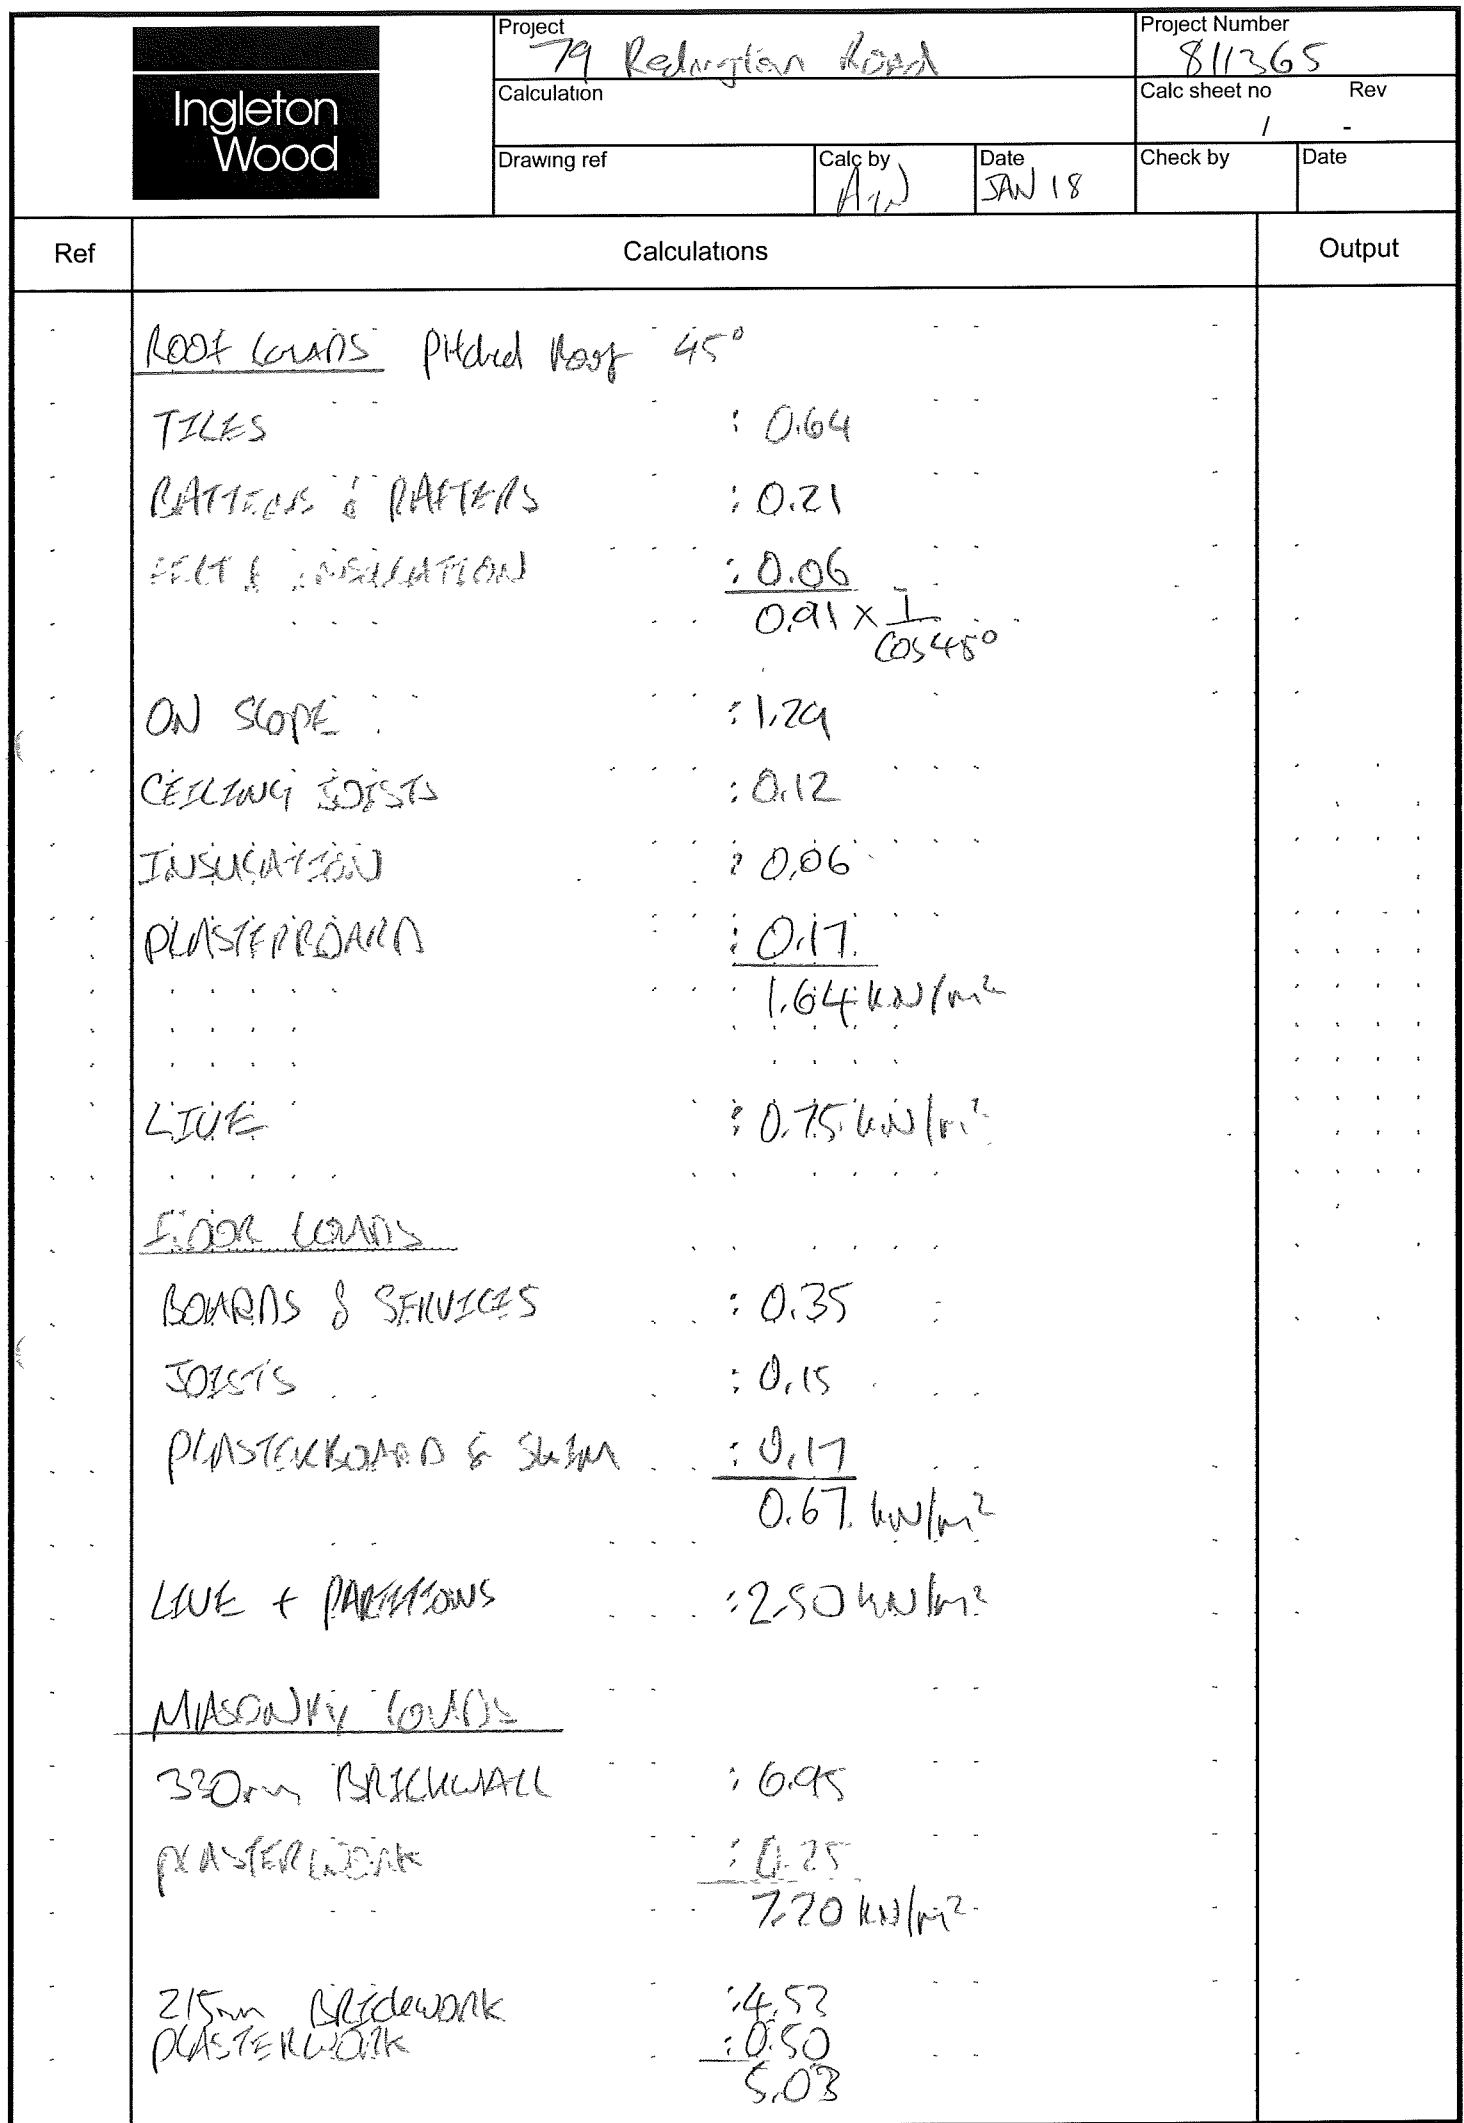 Ingleton
Wood
Project
79 Redington Road
Project Number
811365
Calculation
Calc sheet no Rev
1 -
Drawing ref
Calc by
Date
JAN 18
Check by
Date
Ref Calculations Output
ROOF LOADS Pitched Roof 45°
TILES : 0.64
BATTENS & RAFTERS : 0.21
FELT & INSULATION : 0.06
0.91 × 1
cos 45°
ON SLOPE : 1.29
CEILING JOISTS : 0.12
INSULATION : 0.06
PLASTERBOARD : 0.17
1.64 kN/m²
LIVE : 0.75 kN/m²
FLOOR LOADS
BOARDS & SERVICES : 0.35
JOISTS : 0.15
PLASTERBOARD & SKIM : 0.17
0.67 kN/m²
LIVE + PARTITIONS : 2.50 kN/m²
MASONRY LOADS
330mm BRICKWALL : 6.95
PLASTERWORK : 0.25
7.20 kN/m²
215mm BRICKWORK : 4.53
PLASTERWORK : 0.50
5.03